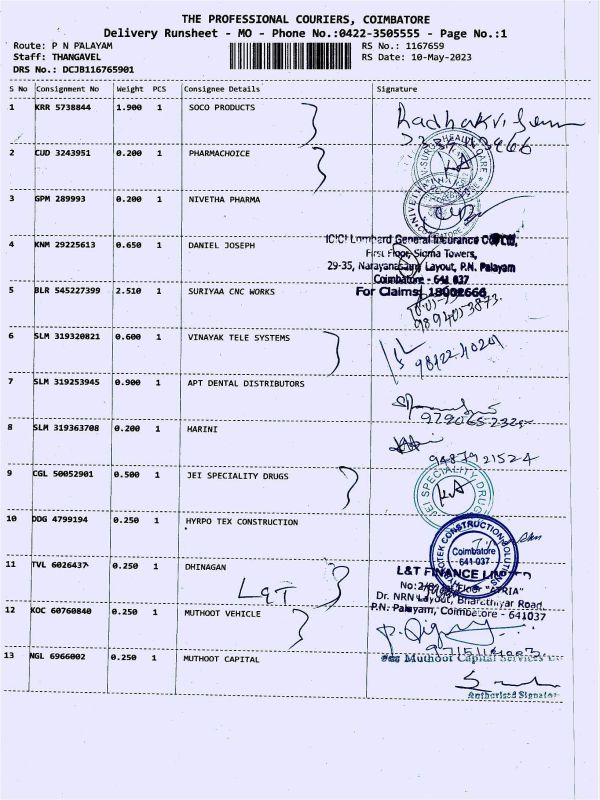 THE PROFESSIONAL COURIERS, COIMBATORE
Delivery Runsheet - MO - Phone No.:0422-3505555 - Page No.:1
Route: P N PALAYAM RS No.: 1167659
Staff: THANGAVEL RS Date: 10-May-2023
DRS No.: DCJB116765901
S No Consignment No Weight PCS Consignee Details Signature
1 KRR 5738844 1.900 1 SOCO PRODUCTS
2 CUD 3243951 0.200 1 PHARMACHOICE
3 GPM 289993 0.200 1 NIVETHA PHARMA
4 KNM 29225613 0.650 1 DANIEL JOSEPH
ICICI Lombard General Insurance Co Ltd,
First Floor, Sigma Towers,
29-35, Narayanasami Layout, P.N. Palayam
Coimbatore - 641 037
5 BLR 545227399 2.510 1 SURIYAA CNC WORKS
For Claims: 18002666
9894053873
6 SLM 319320821 0.600 1 VINAYAK TELE SYSTEMS
98422 40201
7 SLM 319253945 0.900 1 APT DENTAL DISTRIBUTORS
8 SLM 319363708 0.200 1 HARINI
9487921524
9 CGL 50052901 0.500 1 JEI SPECIALITY DRUGS
JEI SPECIALITY DRUGS
10 DDG 4799194 0.250 1 HYRPO TEX CONSTRUCTION
Coimbatore
641 037
11 TVL 6026437 0.250 1 DHINAGAN
L&T
L&T FINANCE
Dr. NRN Layout, Bharathiyar Road,
P.N. Palayam, Coimbatore - 641037
12 KOC 60760840 0.250 1 MUTHOOT VEHICLE
13 NGL 6966002 0.250 1 MUTHOOT CAPITAL
Muthoot Capital Services
Authorised Signator